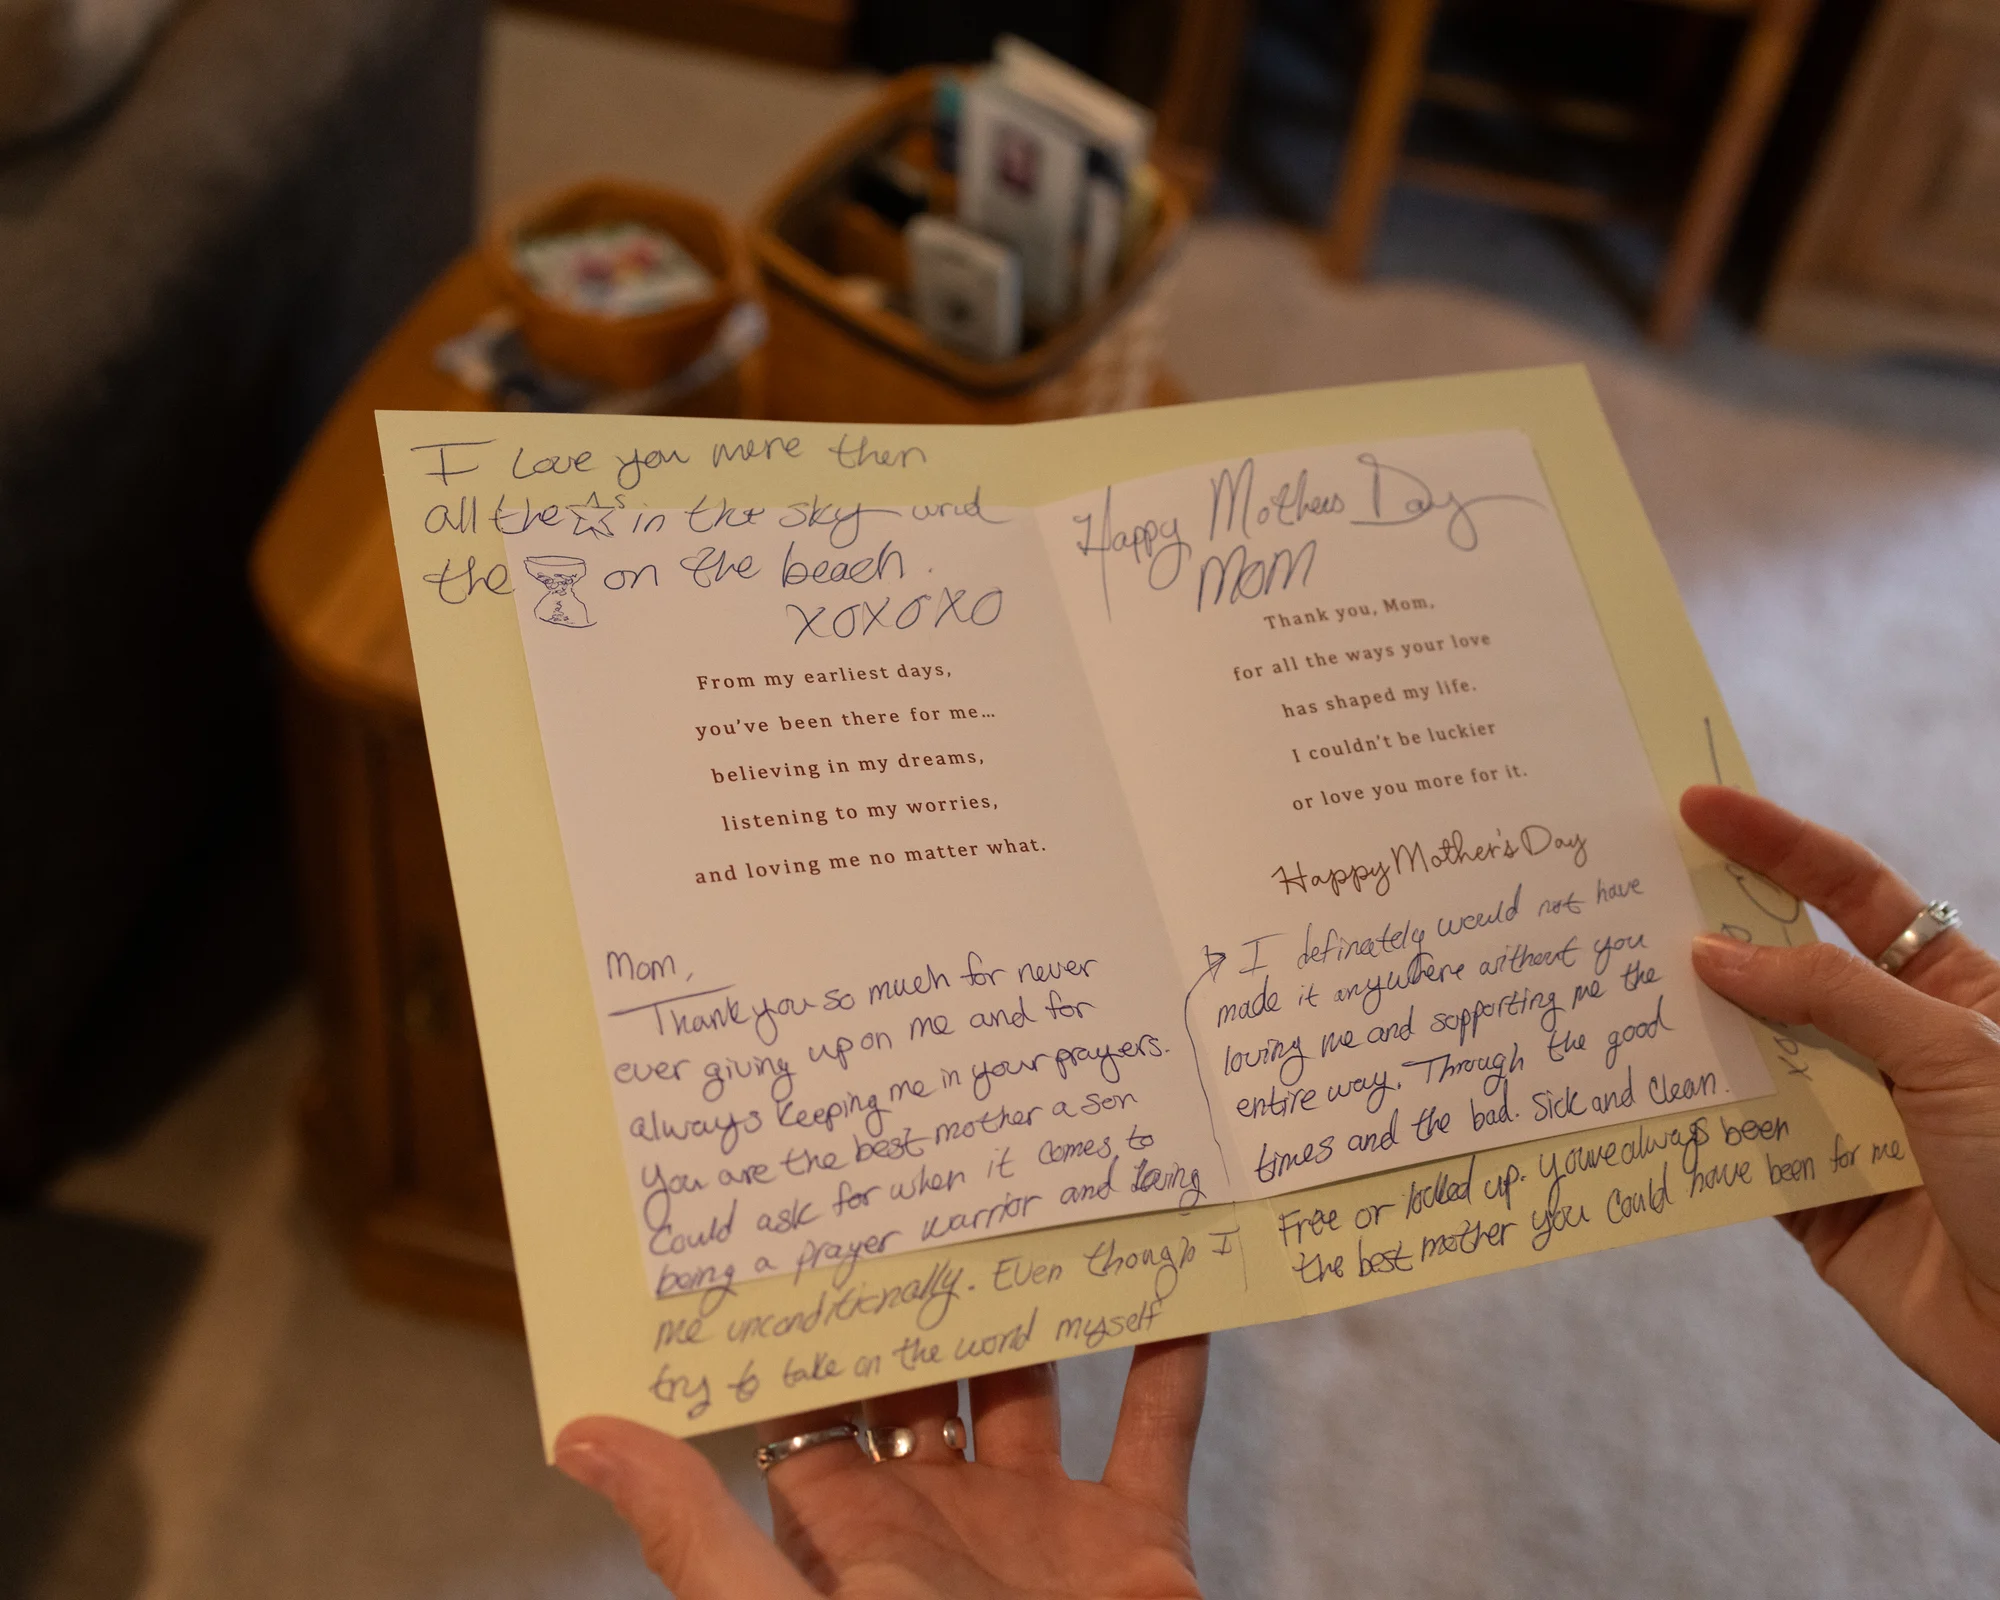 I Love you more then
all the s in the sky and
the on the beach.
XOXOXO
From my earliest days,
you've been there for me...
believing in my dreams,
listening to my worries,
and loving me no matter what.
Mom,
Thank you so much for never
ever giving up on me and for
always keeping me in your prayers.
You are the best mother a son
Could ask for when it comes to
being a prayer warrior and loving
me unconditionally. Even though I
try to take on the world myself
Happy Mothers Day
MOM
Thank you, Mom,
for all the ways your love
has shaped my life.
I couldn't be luckier
or love you more for it.
Happy Mother's Day
I definately would not have
made it anywhere without you
loving me and supporting me the
entire way. Through the good
times and the bad. Sick and Clean.
Free or locked up. youve always been
the best mother you Could have been for me